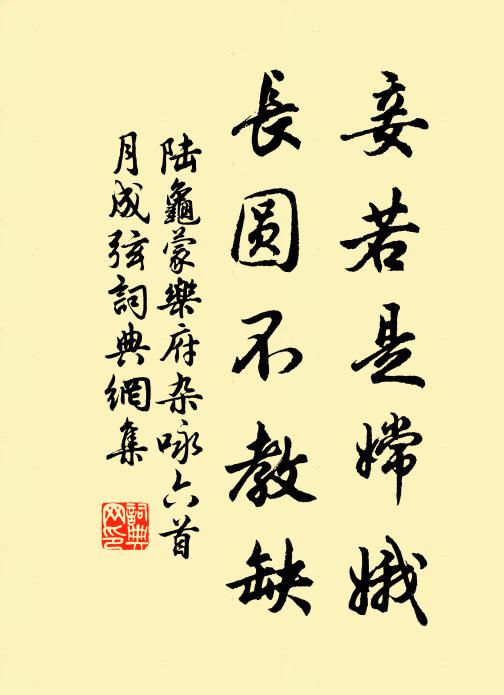 妾若是嫦娥
長圆不教缺
陆龜蒙樂府杂咏六首
月成弦詞典網集
詞典
网印